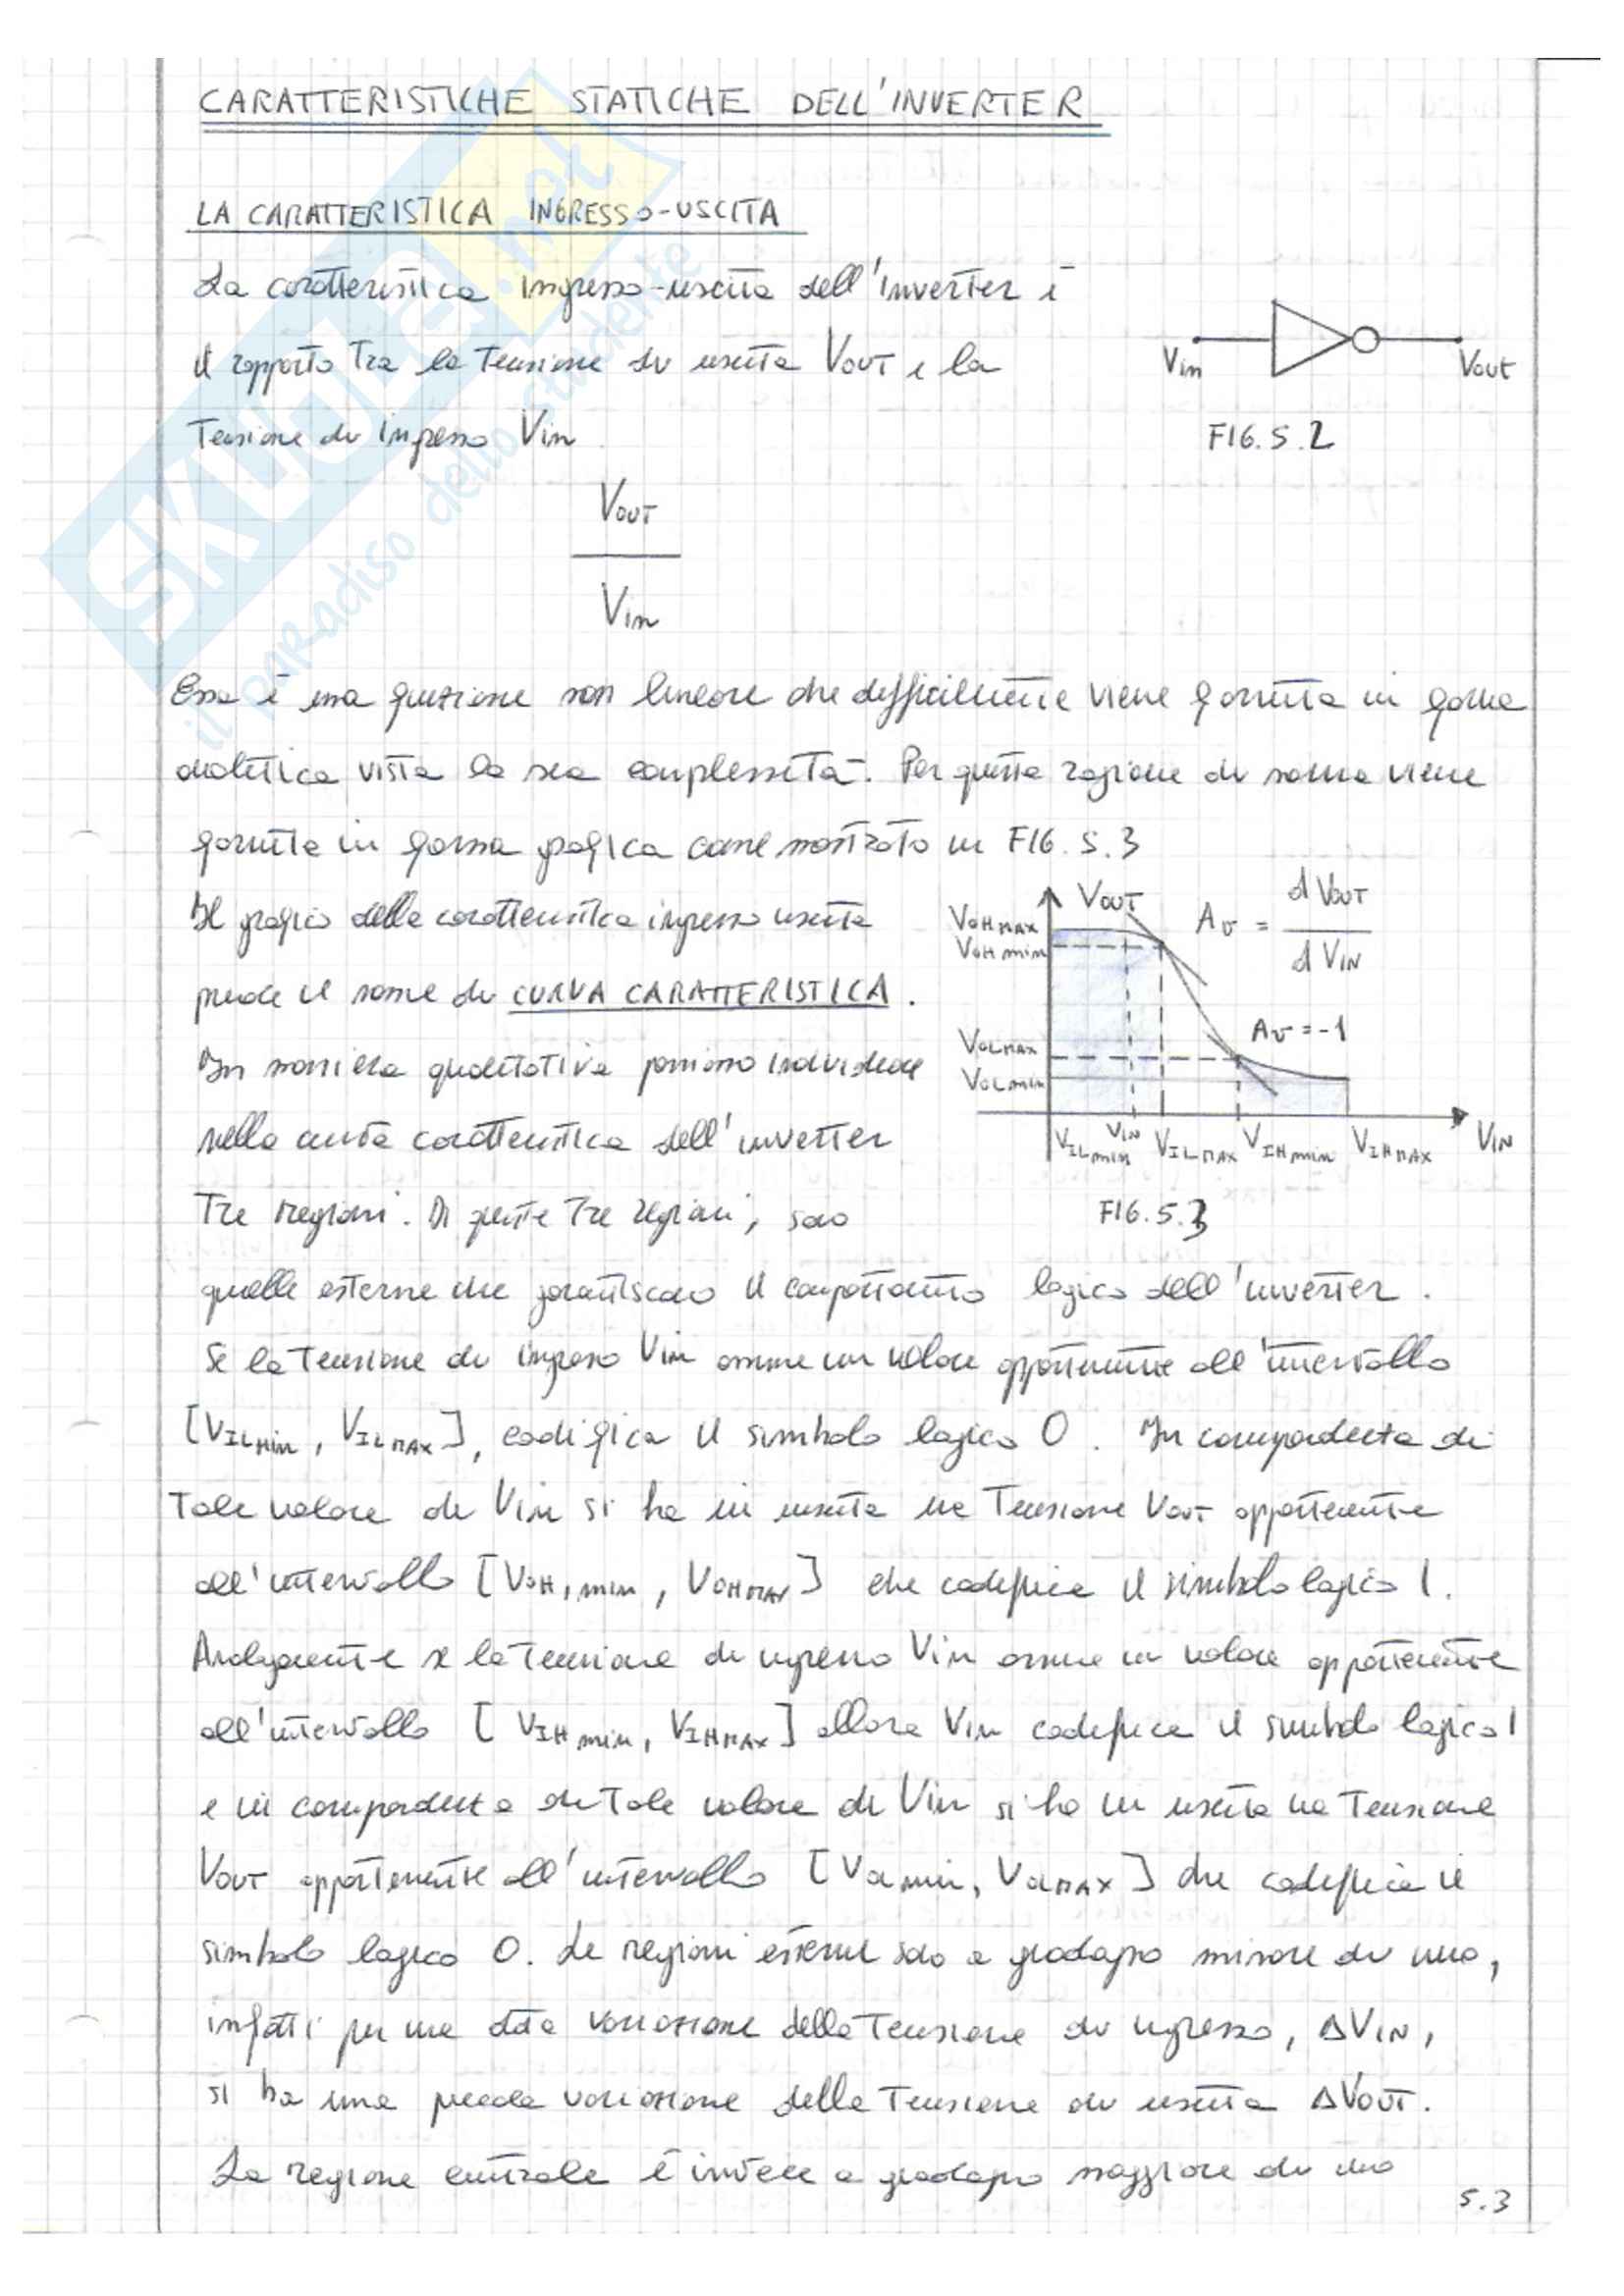 CARATTERISTICHE STATICHE DELL'INVERTER
LA CARATTERISTICA INGRESSO-USCITA
La caratteristica ingresso-uscita dell'inverter è
il rapporto tra la tensione di uscita VOUT e la
tensione di ingresso Vin
Vin
Vout
FIG. 5.2
VOUT
Vin
Essa è una funzione non lineare che difficilmente viene fornita in forma
analitica vista la sua complessità. Per questa ragione di norma viene
fornita in forma grafica come mostrato in FIG. 5.3
Il grafico della caratteristica ingresso uscita
prende il nome di CURVA CARATTERISTICA.
In maniera qualitativa possiamo individuare
nella curva caratteristica dell'inverter
tre regioni. Di queste tre regioni, sono
VOUT
Av = dVOUT / dVIN
VOHMAX
VOHmin
Av = -1
VOLMAX
VOLmin
VILmin VIN VILMAX VIHmin VIHMAX VIN
FIG. 5.3
quelle esterne che garantiscono il comportamento logico dell'inverter.
Se la tensione di ingresso Vin assume un valore appartenente all'intervallo
[VILMin, VILMAX], codifica il simbolo logico 0. In corrispondenza di
tale valore di Vin si ha in uscita una tensione VOUT appartenente
all'intervallo [VOH,min, VOHMAX] che codifica il simbolo logico 1.
Analogamente se la tensione di ingresso Vin assume un valore appartenente
all'intervallo [VIHmin, VIHMAX] allora Vin codifica il simbolo logico 1
e in corrispondenza di tale valore di Vin si ha in uscita una tensione
VOUT appartenente all'intervallo [VOLmin, VOLMAX] che codifica il
simbolo logico 0. Le regioni esterne sono a guadagno minore di uno,
infatti per una data variazione della tensione di ingresso, ΔVIN,
si ha una piccola variazione della tensione di uscita ΔVOUT.
La regione centrale è invece a guadagno maggiore di uno
5.3
SKUOLA.net
il paradiso dello studente